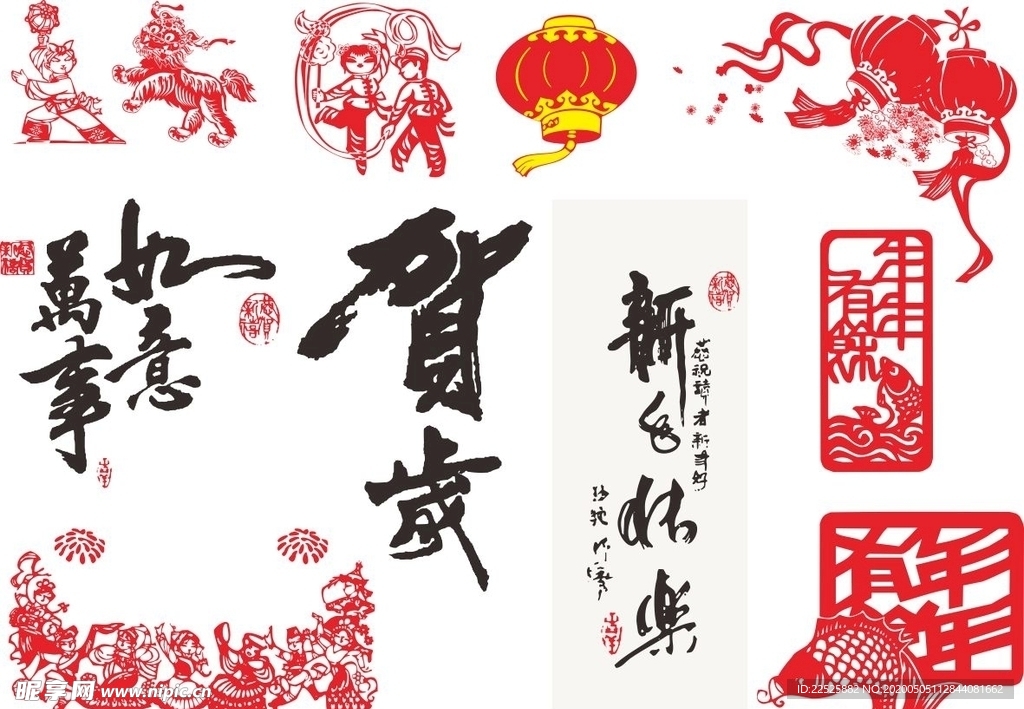 萬事
如意
恭賀新禧
賀歲
新年快樂
恭祝讀者新年好
恭賀新禧
年年
有餘
年年
有
昵享网 www.nipic.cn
ID:22525882 NO:20200505112844081662